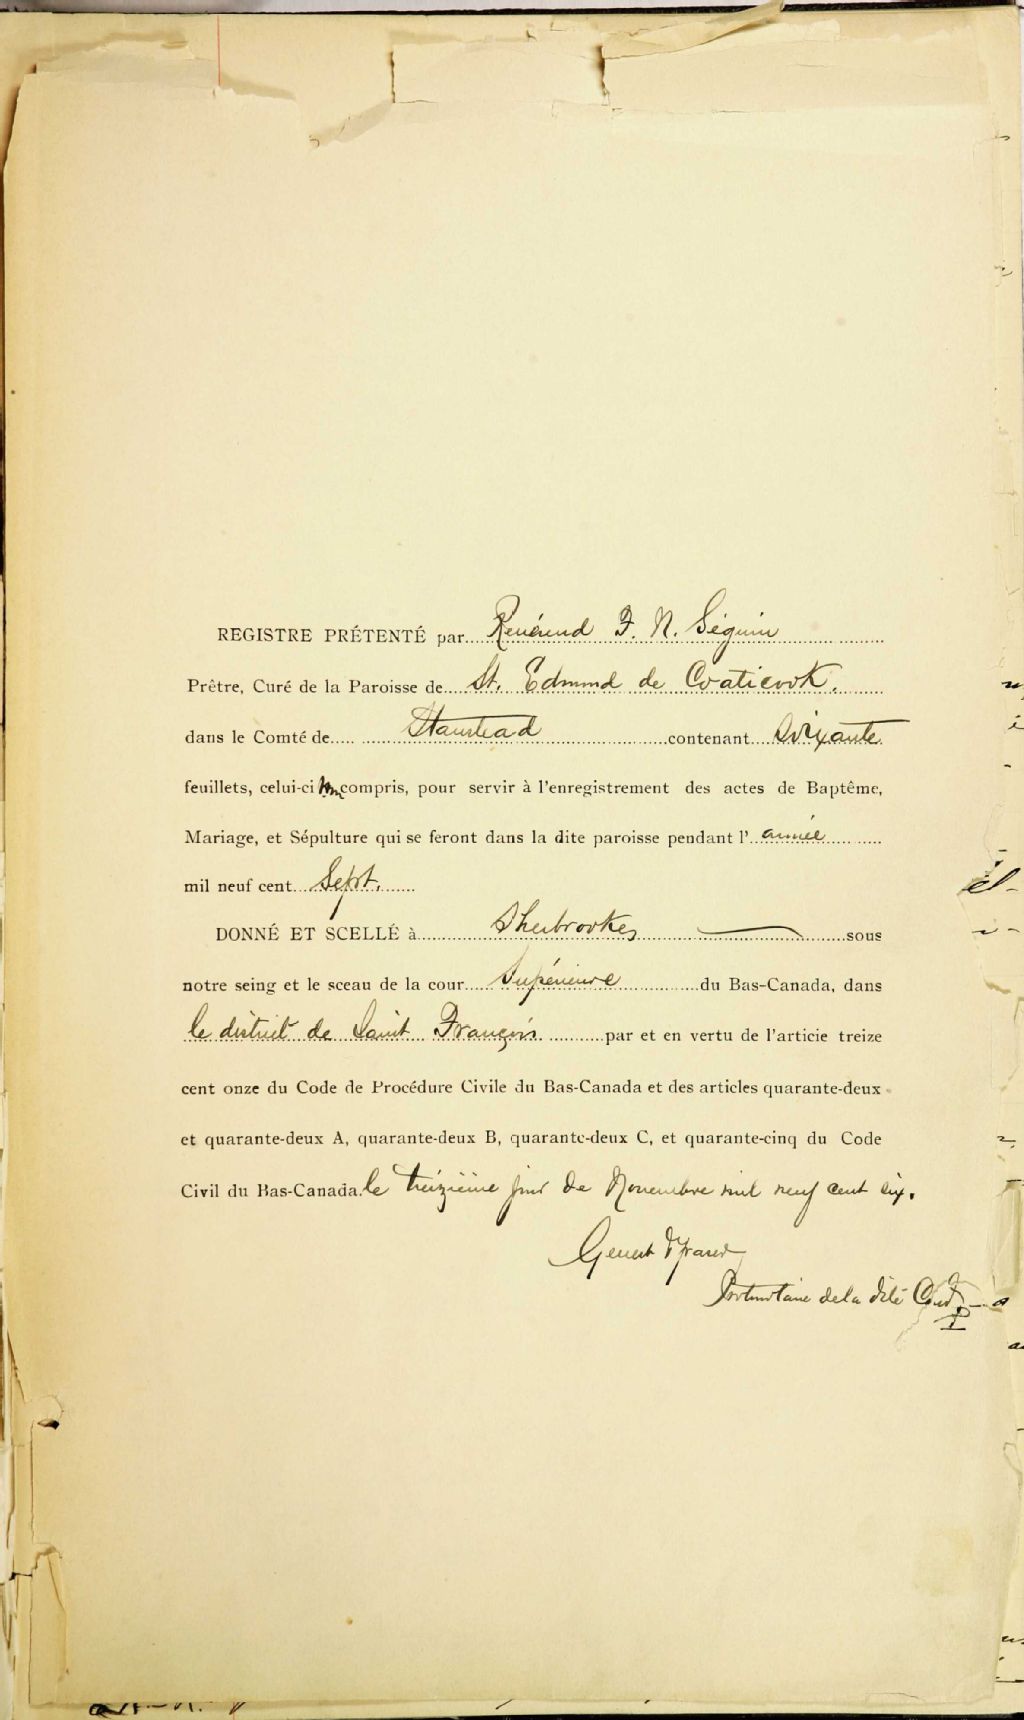 REGISTRE PRÉTENTÉ par Revérend F. N. Séguin
Prêtre, Curé de la Paroisse de St. Edmond de Coaticook.
dans le Comté de Stanstead contenant Soixante
feuillets, celui-ci compris, pour servir à l'enregistrement des actes de Baptême,
Mariage, et Sépulture qui se feront dans la dite paroisse pendant l' année
mil neuf cent Sept.
DONNÉ ET SCELLÉ à Sherbrooke, sous
notre seing et le sceau de la cour Supérieure du Bas-Canada, dans
le district de Saint François par et en vertu de l'articie treize
cent onze du Code de Procédure Civile du Bas-Canada et des articles quarante-deux
et quarante-deux A, quarante-deux B, quarante-deux C, et quarante-cinq du Code
Civil du Bas-Canada. le treizième jour de Novembre mil neuf cent six.
Genest & Fraser
Protonotaire de la dite Cour